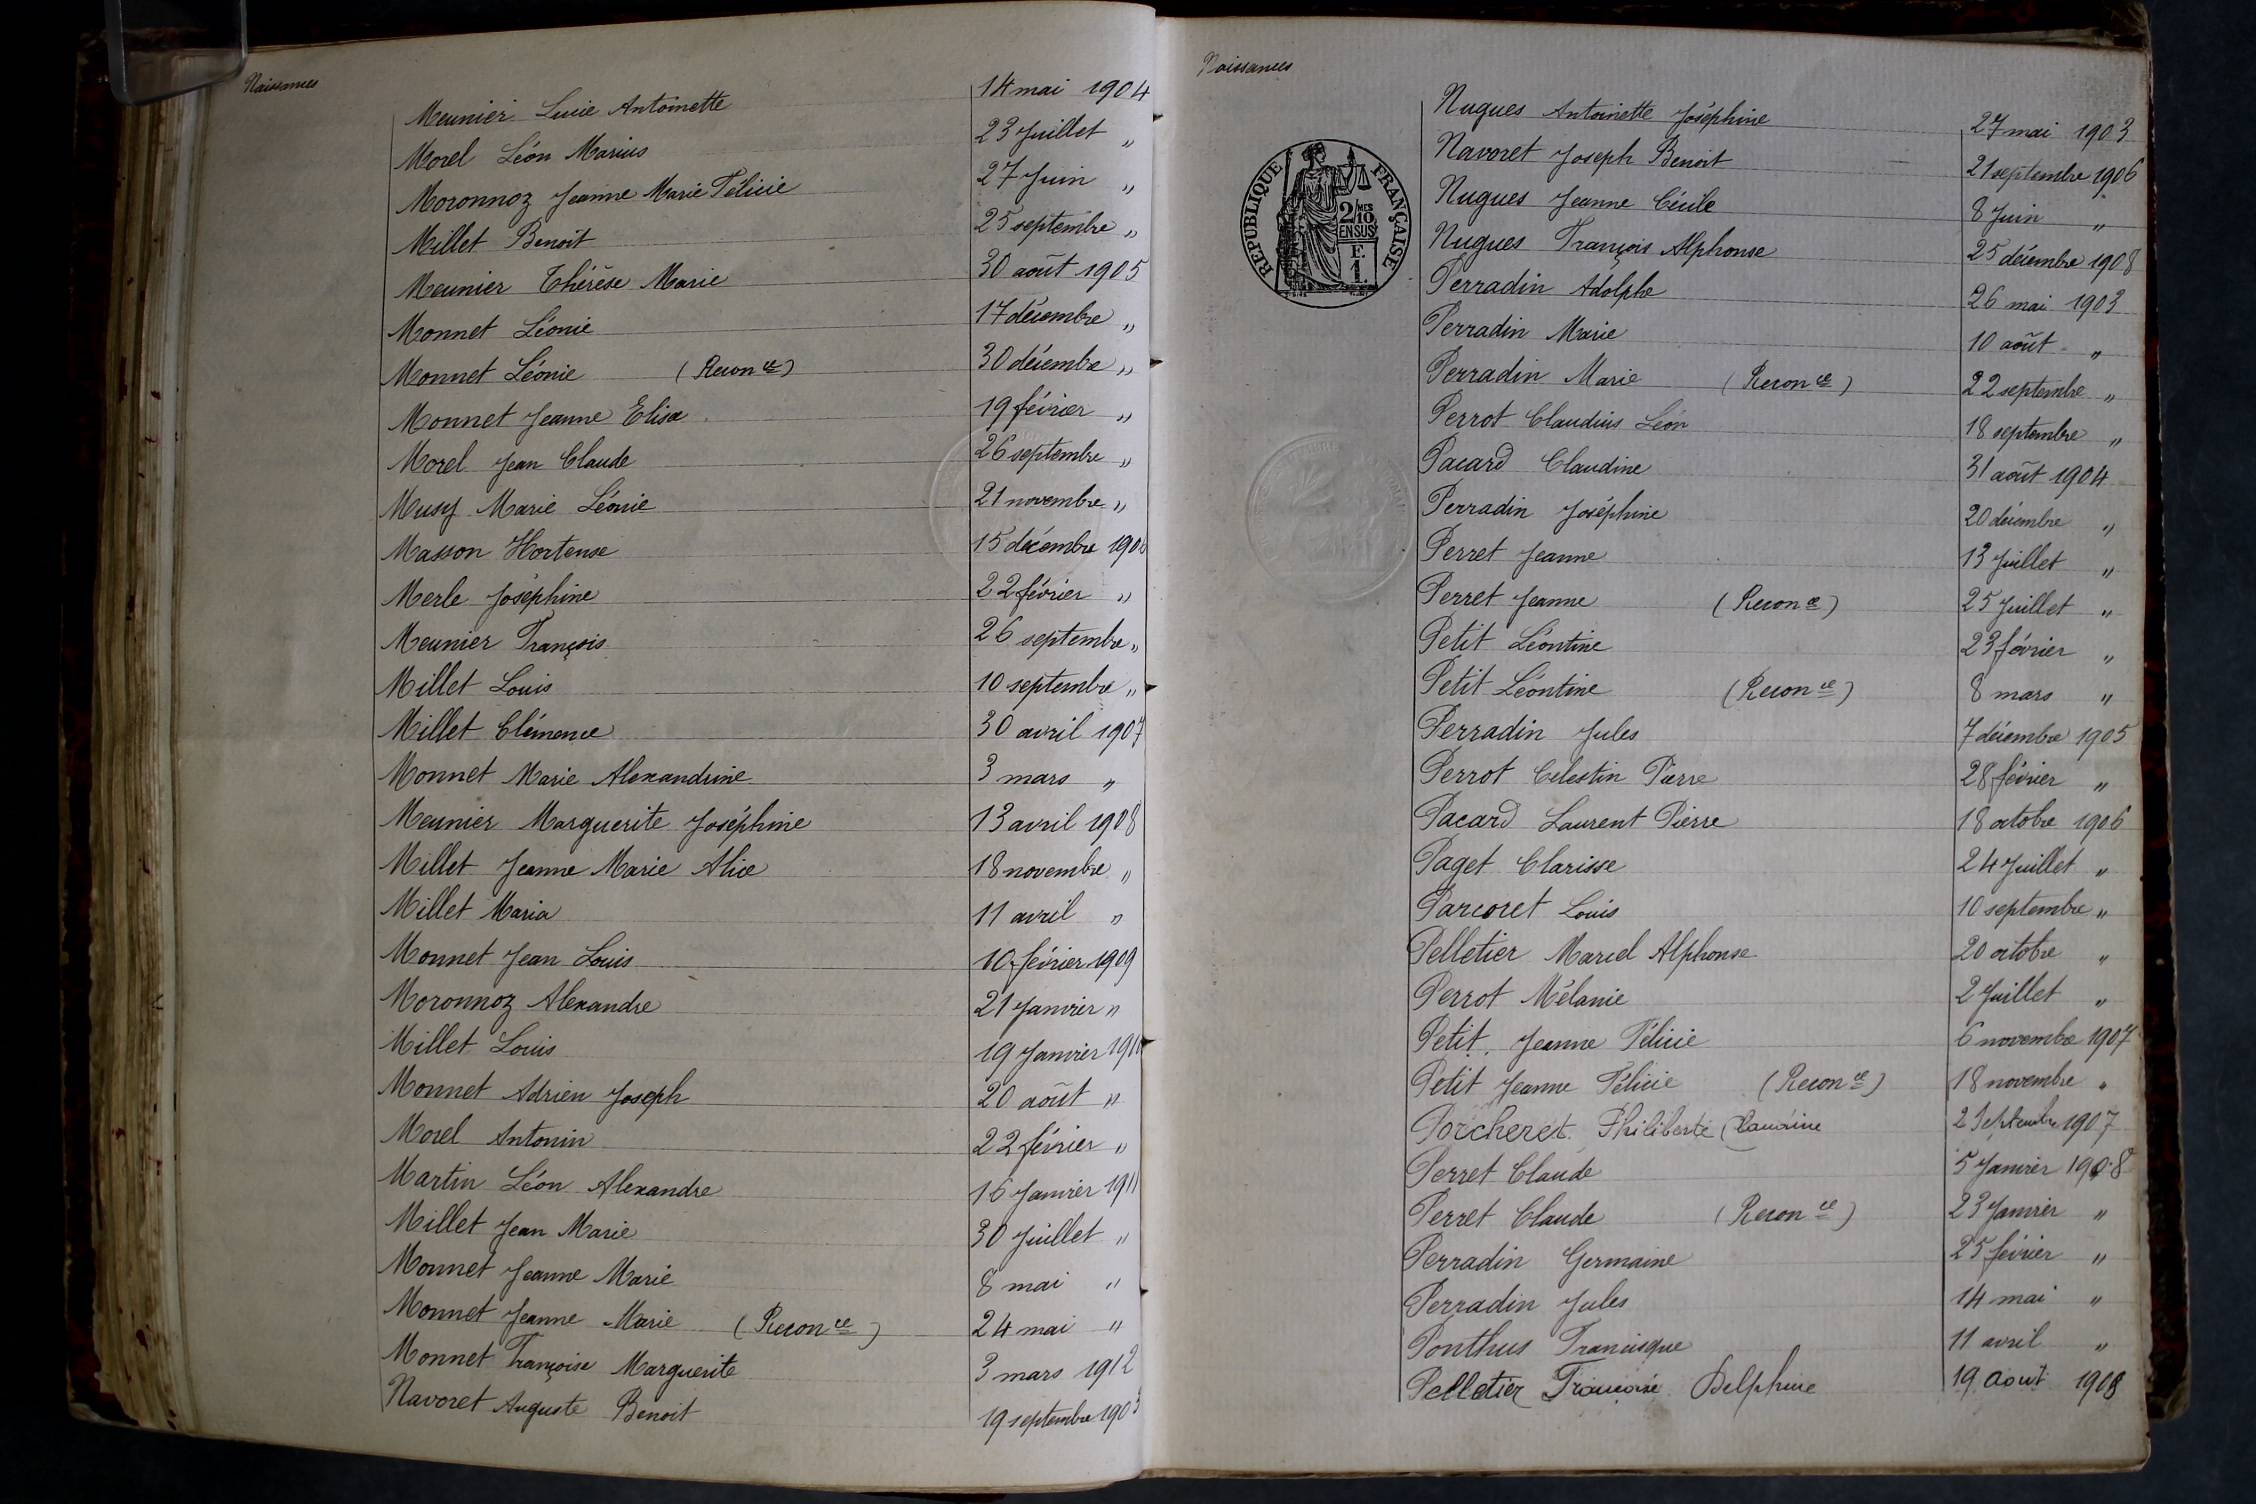 Naissances
Meunier Lucie Antoinette 14 mai 1904
Morel Léon Marius 23 Juillet "
Moronnoz Jeanne Marie Félicie 27 Juin "
Millet Benoît 25 septembre "
Meunier Thérèse Marie 30 août 1905
Monnet Léonie 17 décembre "
Monnet Léonie (Recon ce) 30 décembre "
Monnet Jeanne Elisa 19 février "
Morel Jean Claude 26 septembre "
Musy Marie Léonie 21 novembre "
Masson Hortense 15 décembre 1906
Merle Joséphine 22 février "
Meunier François 26 septembre "
Millet Louis 10 septembre "
Millet Clémence 30 avril 1907
Monnet Marie Alexandrine 3 mars "
Meunier Marguerite Joséphine 13 avril 1908
Millet Jeanne Marie Alice 18 novembre "
Millet Maria 11 avril "
Monnet Jean Louis 10 février 1909
Moronnoz Alexandre 21 Janvier "
Millet Louis 19 Janvier 1910
Monnet Adrien Joseph 20 août "
Morel Antonin 22 février "
Martin Léon Alexandre 16 Janvier 1911
Millet Jean Marie 30 Juillet "
Monnet Jeanne Marie 8 mai "
Monnet Jeanne Marie (Recon ce) 24 mai "
Monnet Françoise Marguerite 3 mars 1912
Navoret Auguste Benoit 19 septembre 1903
Naissances
REPUBLIQUE FRANÇAISE
2/10 MES
EN SUS
F.
1.
Nugues Antoinette Joséphine 27 mai 1903
Navoret Joseph Benoit 21 septembre 1906
Nugues Jeanne Cécile 8 Juin "
Nugues François Alphonse 25 décembre 1908
Perradin Adolphe 26 mai 1903
Perradin Marie 10 août "
Perradin Marie (Recon ce) 22 septembre "
Perrot Claudius Léon 18 septembre "
Pacard Claudine 31 août 1904
Perradin Joséphine 20 décembre "
Perret Jeanne 13 Juillet "
Perret Jeanne (Recon ce) 25 Juillet "
Petit Léontine 23 février "
Petit Léontine (Recon ce) 8 mars "
Perradin Jules 7 décembre 1905
Perrot Célestin Pierre 28 février "
Pacard Laurent Pierre 18 octobre 1906
Paget Clarisse 24 Juillet "
Parcoret Louis 10 septembre "
Pelletier Marcel Alphonse 20 octobre "
Perrot Mélanie 2 Juillet "
Petit Jeanne Félicie 6 novembre 1907
Petit Jeanne Félicie (Recon ce) 18 novembre "
Porcheret Philiberte Claudine 2 Septembre 1907
Perret Claude 5 Janvier 1908
Perret Claude (Recon ce) 23 Janvier "
Perradin Germaine 25 février "
Perradin Jules 14 mai "
Ponthus Francisque 11 avril "
Pelletier Françoise Delphine 19 août 1908